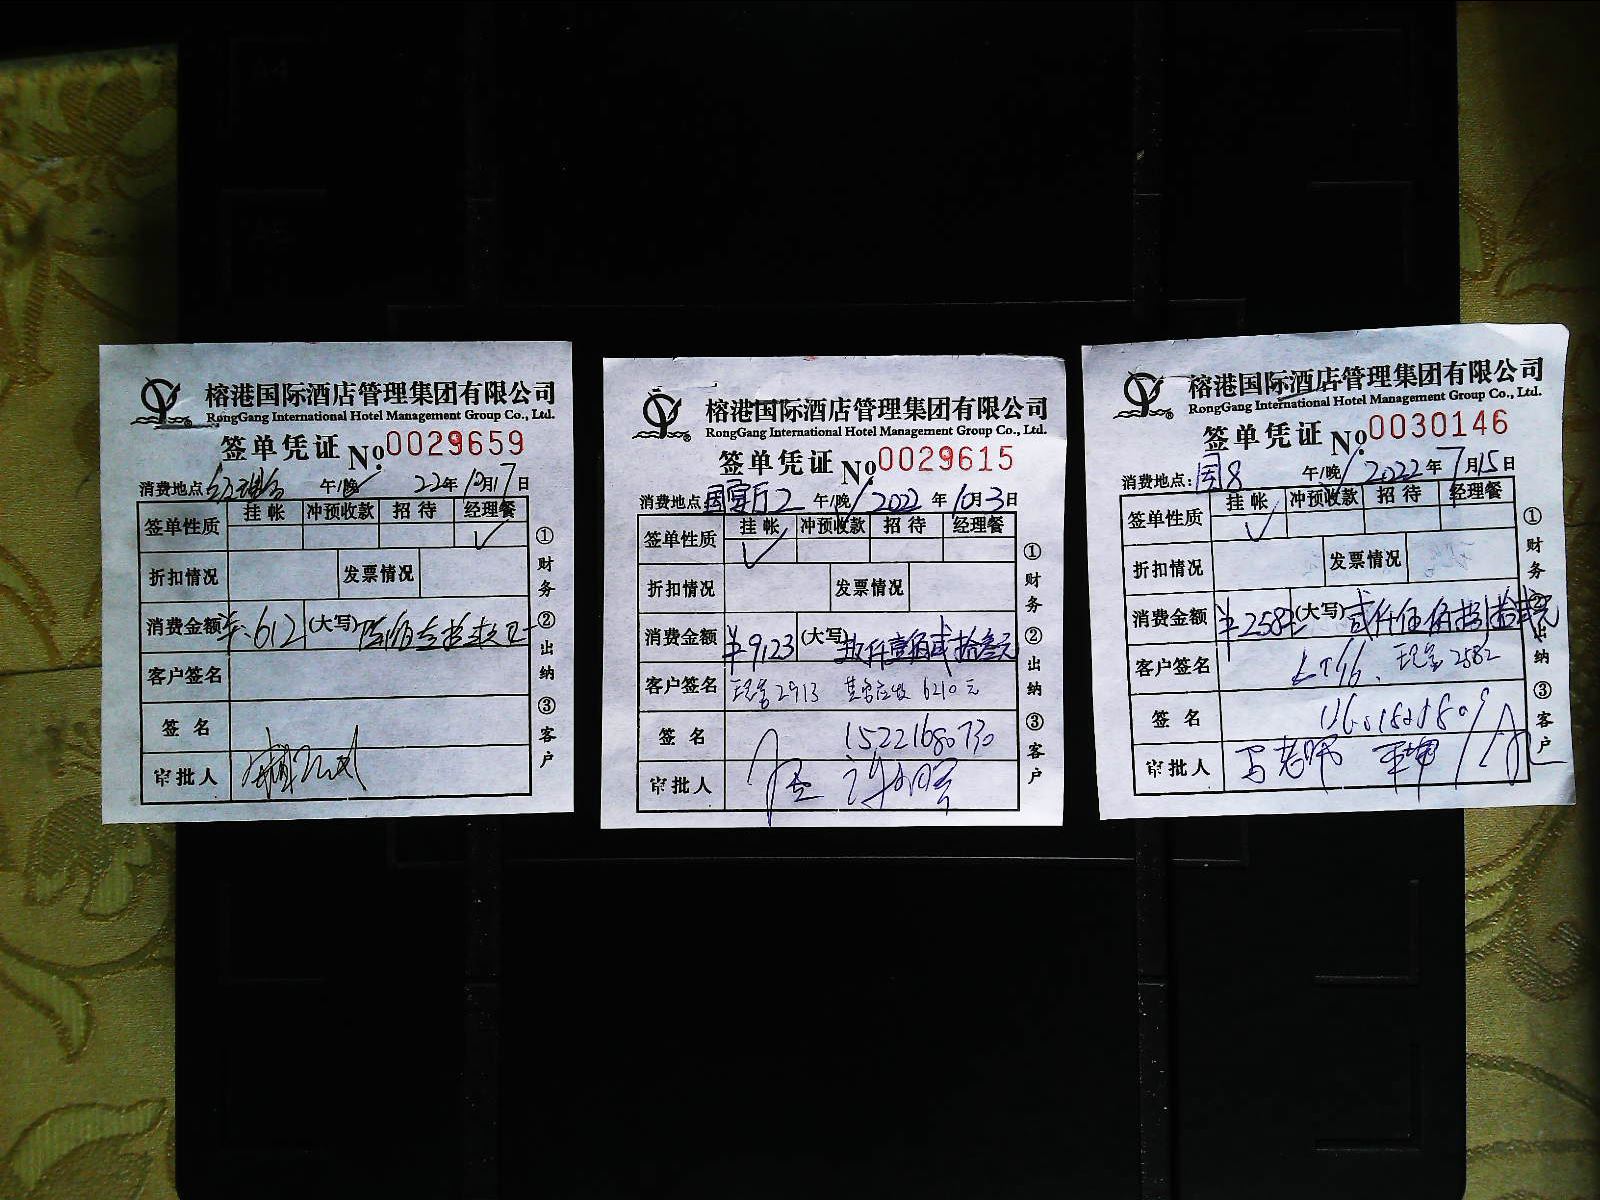 榕港国际酒店管理集团有限公司
RongGang International Hotel Management Group Co., Ltd.
签单凭证 № 0029659
消费地点 午/晚 22年10月17日
签单性质 挂帐 冲预收款 招待 经理餐
折扣情况 发票情况
消费金额 ¥612 (大写) 陆佰壹拾贰元
客户签名
签名
审批人
①财务 ②出纳 ③客户
榕港国际酒店管理集团有限公司
RongGang International Hotel Management Group Co., Ltd.
签单凭证 № 0029615
消费地点 国宴厅2 午/晚 2022年10月3日
签单性质 挂帐 冲预收款 招待 经理餐
折扣情况 发票情况
消费金额 ¥9123 (大写) 玖仟壹佰贰拾叁元
客户签名 现金2913 其余应收6210元
签名 15221680730
审批人
①财务 ②出纳 ③客户
榕港国际酒店管理集团有限公司
RongGang International Hotel Management Group Co., Ltd.
签单凭证 № 0030146
消费地点: 国8 午/晚 2022年7月15日
签单性质 挂帐 冲预收款 招待 经理餐
折扣情况 发票情况
消费金额 ¥2582 (大写) 贰仟伍佰捌拾贰元
客户签名 现金2582
签名
审批人 马老师
①财务 ②出纳 ③客户